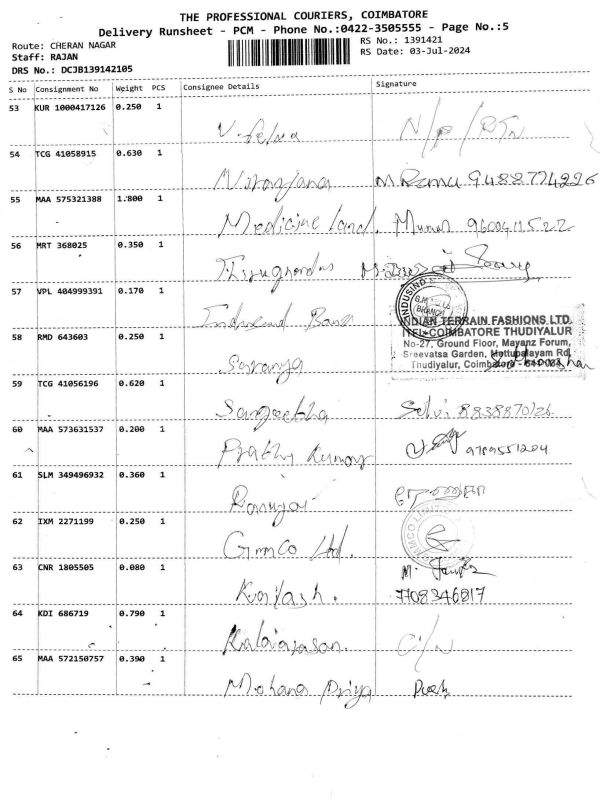 THE PROFESSIONAL COURIERS, COIMBATORE
Delivery Runsheet - PCM - Phone No.:0422-3505555 - Page No.:5
Route: CHERAN NAGAR
RS No.: 1391421
Staff: RAJAN
RS Date: 03-Jul-2024
DRS No.: DCJB139142105
S No Consignment No Weight PCS Consignee Details Signature
53 KUR 1000417126 0.250 1
N/P/RTN
54 TCG 41058915 0.630 1
Niranjana M. Rema 9488774226
55 MAA 575321388 1.800 1
Medicine land.
56 MRT 368025 0.350 1
57 VPL 404999391 0.170 1
INDUSIND
BRANCH
Indusind Bank
INDIAN TERRAIN FASHIONS LTD.
ITFL-COIMBATORE THUDIYALUR
58 RMD 643603 0.250 1
No-27, Ground Floor, Mayanz Forum,
Sreevatsa Garden, Mettupalayam Rd,
Thudiyalur, Coimbatore - 641 034
Saranya
59 TCG 41056196 0.620 1
Sangeetha Selvi
60 MAA 573631537 0.200 1
Kumar 9789551204
61 SLM 349496932 0.360 1
62 IXM 2271199 0.250 1
Gimco Ltd.
63 CNR 1805505 0.080 1
Kailash. 7708346817
64 KDI 686719 0.790 1
Kalaiarasan. C/N
65 MAA 572150757 0.390 1
Mohana Priya